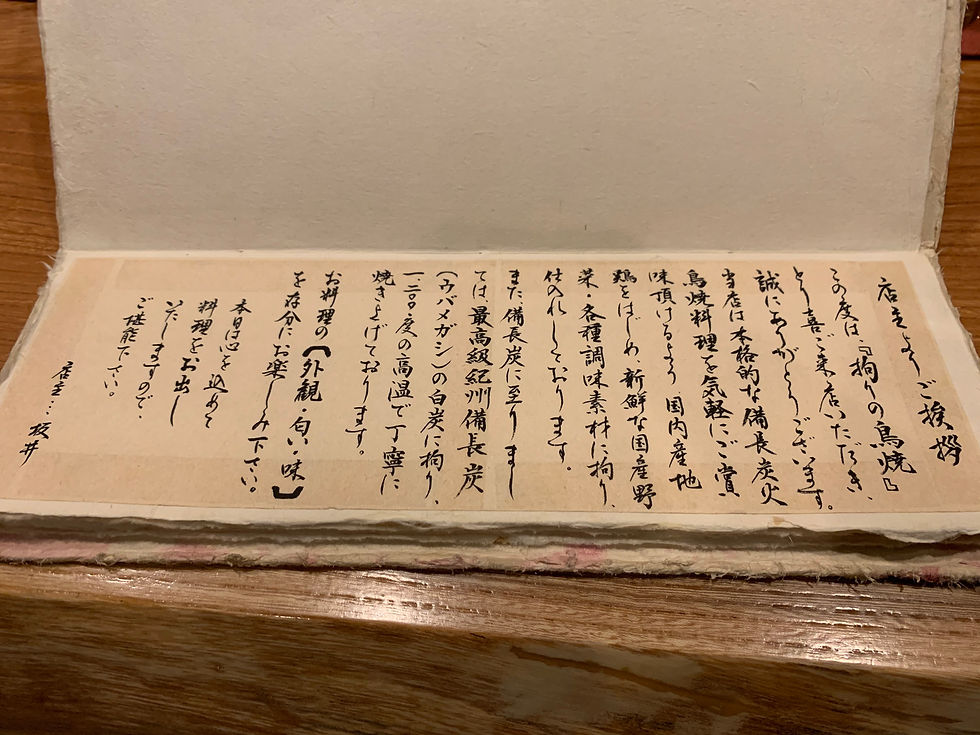 店主よりご挨拶
この度は『拘りの鳥焼』
とり喜ご来店いただき、
誠にありがとうございます。
当店は本格的な備長炭火
鳥焼料理を気軽にご賞
味頂けるよう国内産地
鶏をはじめ、新鮮な国産野
菜・各種調味素材に拘り、
仕入れしております。
また、備長炭に至りまし
ては、最高級紀州備長炭
(ウバメガシ)の白炭に拘り、
一二〇〇度の高温で丁寧に
焼き上げております。
お料理の【外観・匂い・味】
を存分にお楽しみ下さい。
本日は心を込めて
料理をお出し
いたしますので、
ご堪能下さい。
店主… 坂井